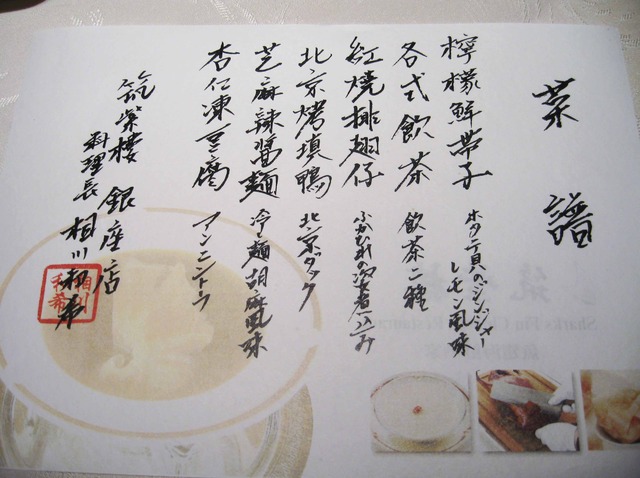 菜譜
檸檬鮮帯子
ホタテ貝のジンジャー
レモン風味
各式飲茶
飲茶二種
紅焼排翅仔
ふかひれの姿煮込み
北京烤填鴨
北京ダック
芝麻辣醤麺
冷し麺胡麻風味
杏仁凍豆腐
アンニンドウフ
筑紫樓 銀座店
料理長 相川和希
相川
和希